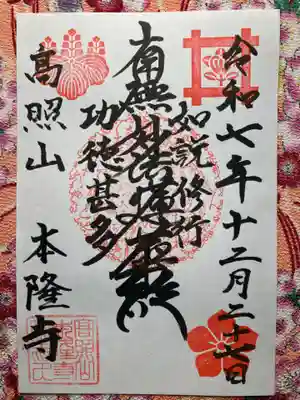 令和七年十二月二十七日
如説修行
南無妙法蓮華経
功徳甚多
高照山 本隆寺